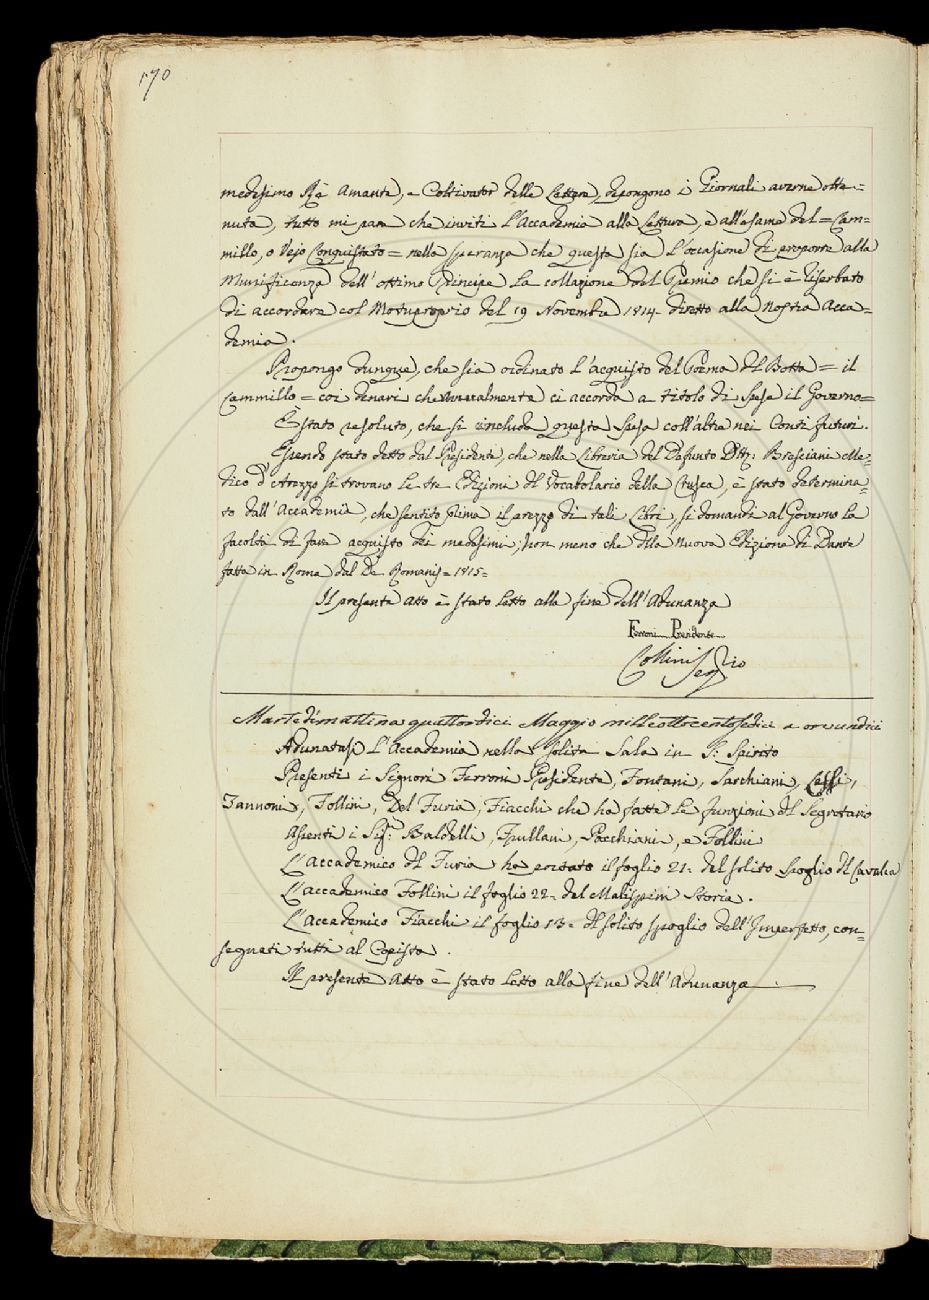 170
medesimo Rè Amante, e Coltivator delle Lettere, depongono i Giornali averne otte=
nuta, tutto mi pare che inviti l'Accademia alla lettura, e all'esame del = Cam=
millo, o Vejo Conquistato = nella speranza che questa sia l'occasione di proporre alla
Munificenza dell'ottimo Principe la collazione del Premio che si è riserbato
di accordare col Motuproprio del 19 Novembre 1814 diretto alla Nostra Acca=
demia.
Propongo dunque, che sia ordinato l'acquisto del Poema del Botta = il
Cammillo = coi denari che ci accorda a titolo di Spese il Governo =
È stato resoluto, che si includa questa Spesa coll'altre nei Conti futuri.
Essendo stato detto dal Presidente, che nella Libreria del Defunto Dtt: Bresciani Me=
dico d'Arezzo si trovano le tre Edizioni del Vocabolario della Crusca, è stato determina=
to dall'Accademia, che sentito prima il prezzo di tali Libri, si domandi al Governo la
facoltà di fare acquisto dei medesimi, non meno che della nuova Edizione di Dante
fatta in Roma dal De Romanis = 1815 =
Il presente Atto è stato letto alla fine dell'Adunanza
Ferroni Presidente
Collini Seg.rio
Martedì mattina quattordici Maggio milleottocentosedici a ore undici
Adunatasi l'Accademia nella solita Sala in S: Spirito
Presenti i Signori Ferroni Presidente, Fontani, Sarchiani, Lessi,
Zannoni, Follini, Del Furia, Fiacchi che ha fatte le funzioni del Segretario
Assenti i Sig.ri Baldelli, Frullani, Pacchiani, e Follini
L'Accademico del Furia ha portato il foglio 21. del solito Spoglio del Cavalca
L'Accademico Follini il foglio 22. del Malispini Storia.
L'Accademico Fiacchi il foglio 13. del solito spoglio dell'Imperfetto, con=
segnati tutti al Copista.
Il presente Atto è stato letto alla fine dell'Adunanza.